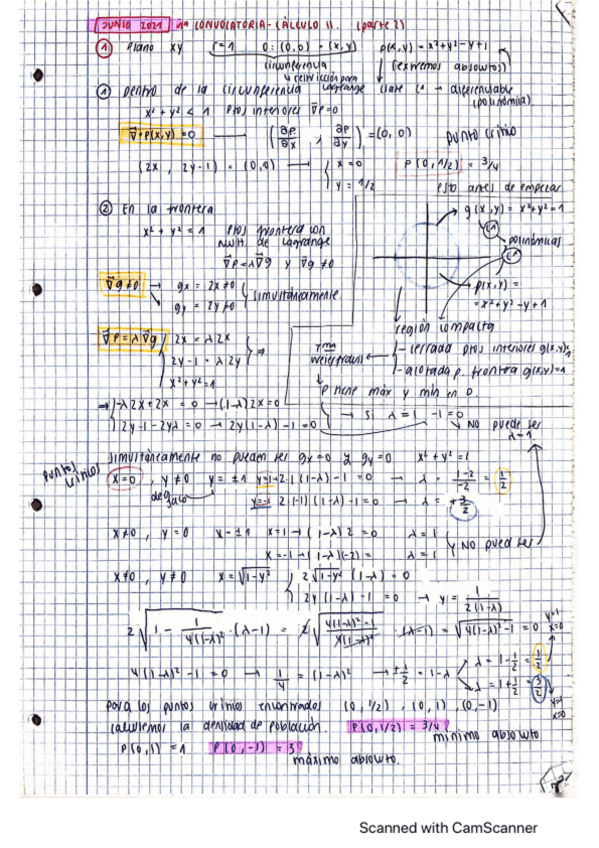 JUNIO 2021 1ª CONVOCATORIA - CÁLCULO II. (parte 2)
① Plano xy r=1 0:(0,0) - (x,y) p(x,y) = x²+y²-y+1
circunferencia (extremos absolutos)
restricción para Lagrange
① Dentro de la circunferencia clase C¹ → diferenciable
(polinómica)
x²+y² < 1 ptos interiores ∇p=0
∇·p(x,y) = 0 (∂p/∂x , ∂p/∂y) = (0,0) punto crítico
(2x, 2y-1) = (0,0) → { x=0 y=1/2 P(0,1/2) = 3/4
esto antes de empezar
② En la frontera g(x,y) = x²+y²=1
x²+y²=1 ptos frontera con C¹ polinómicas
Mult. de Lagrange C¹
∇p=λ∇g y ∇g≠0 p(x,y) =
= x²+y²-y+1
∇g≠0 → gx = 2x≠0
gy = 2y≠0 } simultáneamente.
región compacta
∇p=λ∇g { 2x = λ2x
2y-1 = λ2y ⇒
x²+y²=1
Tma Weierstrass
- cerrada ptos interiores g(x,y)<1
- acotada p. frontera g(x,y)=1
p tiene máx y mín en D.
⇒ { -λ2x+2x = 0 → (1-λ)2x=0
2y-1-2yλ=0 → 2y(1-λ)-1=0 { → si λ=1 -1=0
→ NO puede ser λ=1
simultáneamente no pueden ser gx=0 y gy=0 x²+y²=1
puntos críticos
x=0 , y≠0 y=±1 y=1→2·1(1-λ)-1=0 → λ = 1-2/-2 = 1/2
de facto y=-1 2·(-1)(1-λ)-1=0 → λ = +3/2
x≠0 , y=0 x=±1 x=1→(1-λ)2=0 λ=1
x=-1→(1-λ)(-2)= λ=1 } NO puede ser
x≠0 , y≠0 x=√1-y² { 2√1-y² (1-λ)=0
2y(1-λ)-1=0 → y= 1/2(1-λ)
2√(1 - 1/4(1-λ)²)·(λ-1) = 2√(4(1-λ)²-1/4(1-λ)²) (λ-1) = √4(1-λ)²-1 = 0 y=1 x=0
4(1-λ)²-1=0 → 1/4 = (1-λ)² → ±1/2 = 1-λ
λ=1-1/2=1/2
λ=1+1/2=3/2 y=-1 x=0
para los puntos críticos encontrados (0,1/2) , (0,1) , (0,-1)
calculemos la densidad de población. P(0,1/2) = 3/4
mínimo absoluto
P(0,1) = 1 P(0,-1) = 3
máximo absoluto.
Scanned with CamScanner